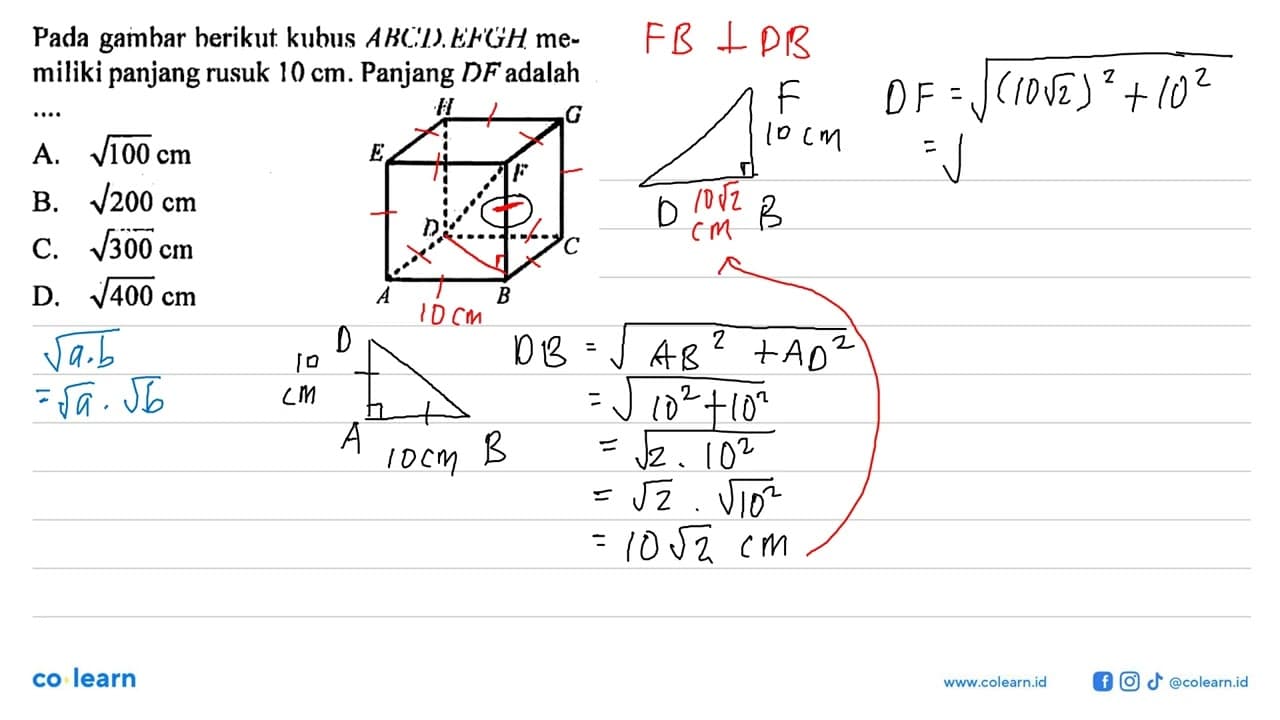 Pada gambar berikut kubus ABCD.EFGH me-
miliki panjang rusuk 10 cm. Panjang DF adalah
....
A. √100 cm
B. √200 cm
C. √300 cm
D. √400 cm
H
G
E
F
D
C
A
B
10 cm
FB ⊥ DB
F
10 cm
D
10√2
cm
B
DF = √((10√2)² + 10²)
= √
√a.b
= √a . √b
D
10
cm
A
10 cm
B
DB = √(AB² + AD²)
= √(10² + 10²)
= √(2 . 10²)
= √2 . √10²
= 10√2 cm
co learn
www.colearn.id
@colearn.id